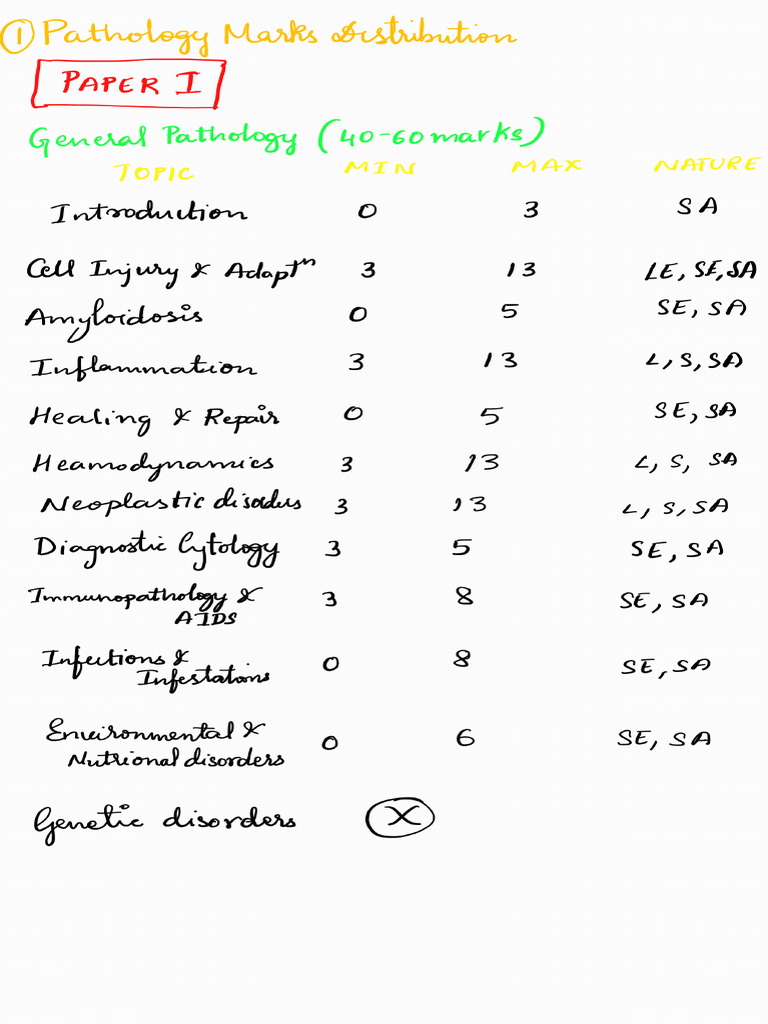 ① Pathology Marks Distribution
PAPER I
General Pathology (40-60 marks)
TOPIC MIN MAX NATURE
Introduction 0 3 SA
Cell Injury & Adaptⁿ 3 13 LE, SE, SA
Amyloidosis 0 5 SE, SA
Inflammation 3 13 L, S, SA
Healing & Repair 0 5 SE, SA
Heamodynamics 3 13 L, S, SA
Neoplastic 3 13 L, S, SA
Diagnostic Cytology 3 5 SE, SA
Immunopathology & 3 8 SE, SA
AIDS
Infections & 0 8 SE, SA
Infestations
Environmental & 0 6 SE, SA
Nutrional disorders
Genetic disorders X